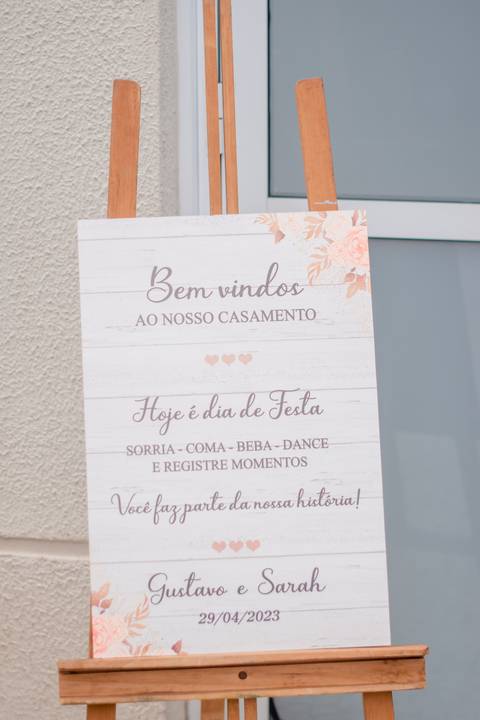 Bem vindos
AO NOSSO CASAMENTO
Hoje é dia de Festa
SORRIA - COMA - BEBA - DANCE
E REGISTRE MOMENTOS
Você faz parte da nossa história!
Gustavo e Sarah
29/04/2023